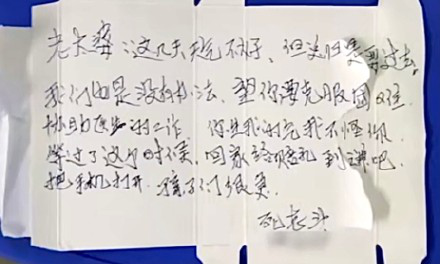 老太婆：这几天天气不好，但总归要过去，
我们也是没办法，望你要克服困难
协助医生的工作 你生我的气我不怪你，
等过了这个时候，回家给赔礼到谦吧，
把手机打开，孩子们很
死老头